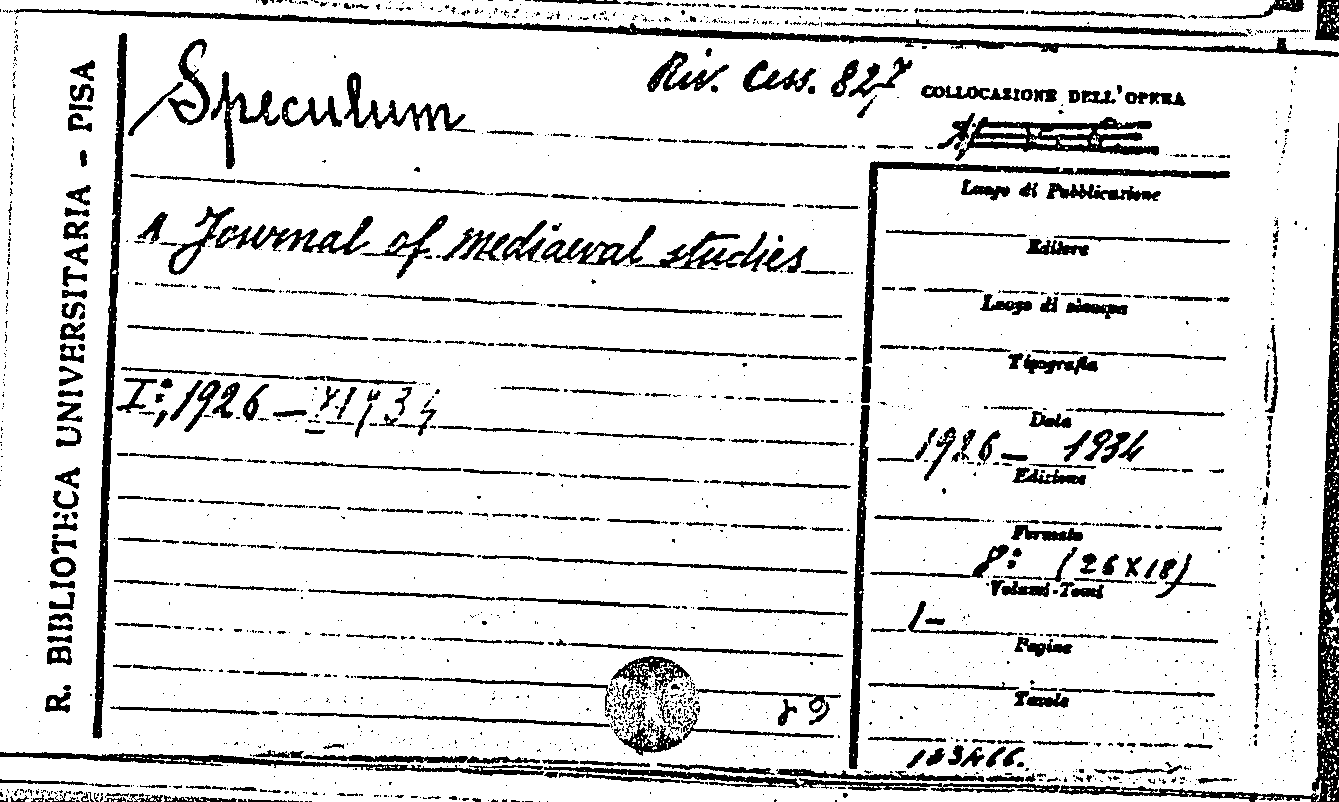 R. BIBLIOTECA UNIVERSITARIA - PISA
Speculum
Riv. Cess. 827
COLLOCAZIONE DELL'OPERA
A Journal of mediaeval studies
I:, 1926 - 1934
Luogo di Pubblicazione
Editore
Luogo di stampa
Tipografia
Data
1926 - 1934
Edizione
Formato
8: (26X18)
Volumi-Tomi
1-
Pagine
Tavole
123466.